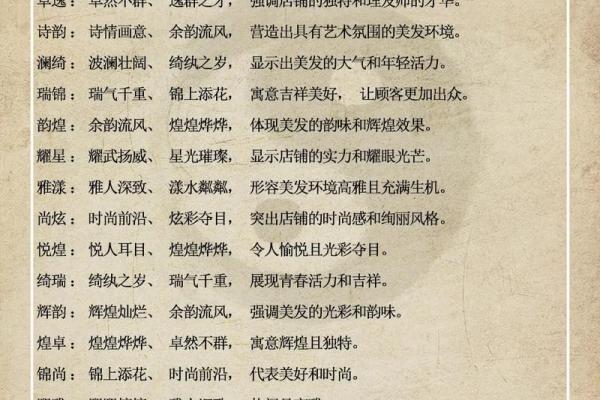 卓逸：卓然不群、逸群之才，强调店铺的独特和理发师的才华。
诗韵：诗情画意、余韵流风，营造出具有艺术氛围的美发环境。
澜绮：波澜壮阔、绮纨之岁，显示出美发的大气和年轻活力。
瑞锦：瑞气千重、锦上添花，寓意吉祥美好，让顾客更加出众。
韵煌：余韵流风、煌煌烨烨，体现美发的韵味和辉煌效果。
耀星：耀武扬威、星光璀璨，显示店铺的实力和耀眼光芒。
雅漾：雅人深致、漾水粼粼，形容美发环境高雅且充满生机。
尚炫：时尚前沿、炫彩夺目，突出店铺的时尚感和绚丽风格。
悦煌：悦人耳目、煌煌烨烨，令人愉悦且光彩夺目。
绮瑞：绮纨之岁、瑞气千重，展现青春活力和吉祥。
辉韵：辉煌灿烂、余韵流风，强调美发的光彩和韵味。
煌卓：煌煌烨烨、卓然不群，寓意辉煌且独特。
锦尚：锦上添花、时尚前沿，代表美好和时尚。